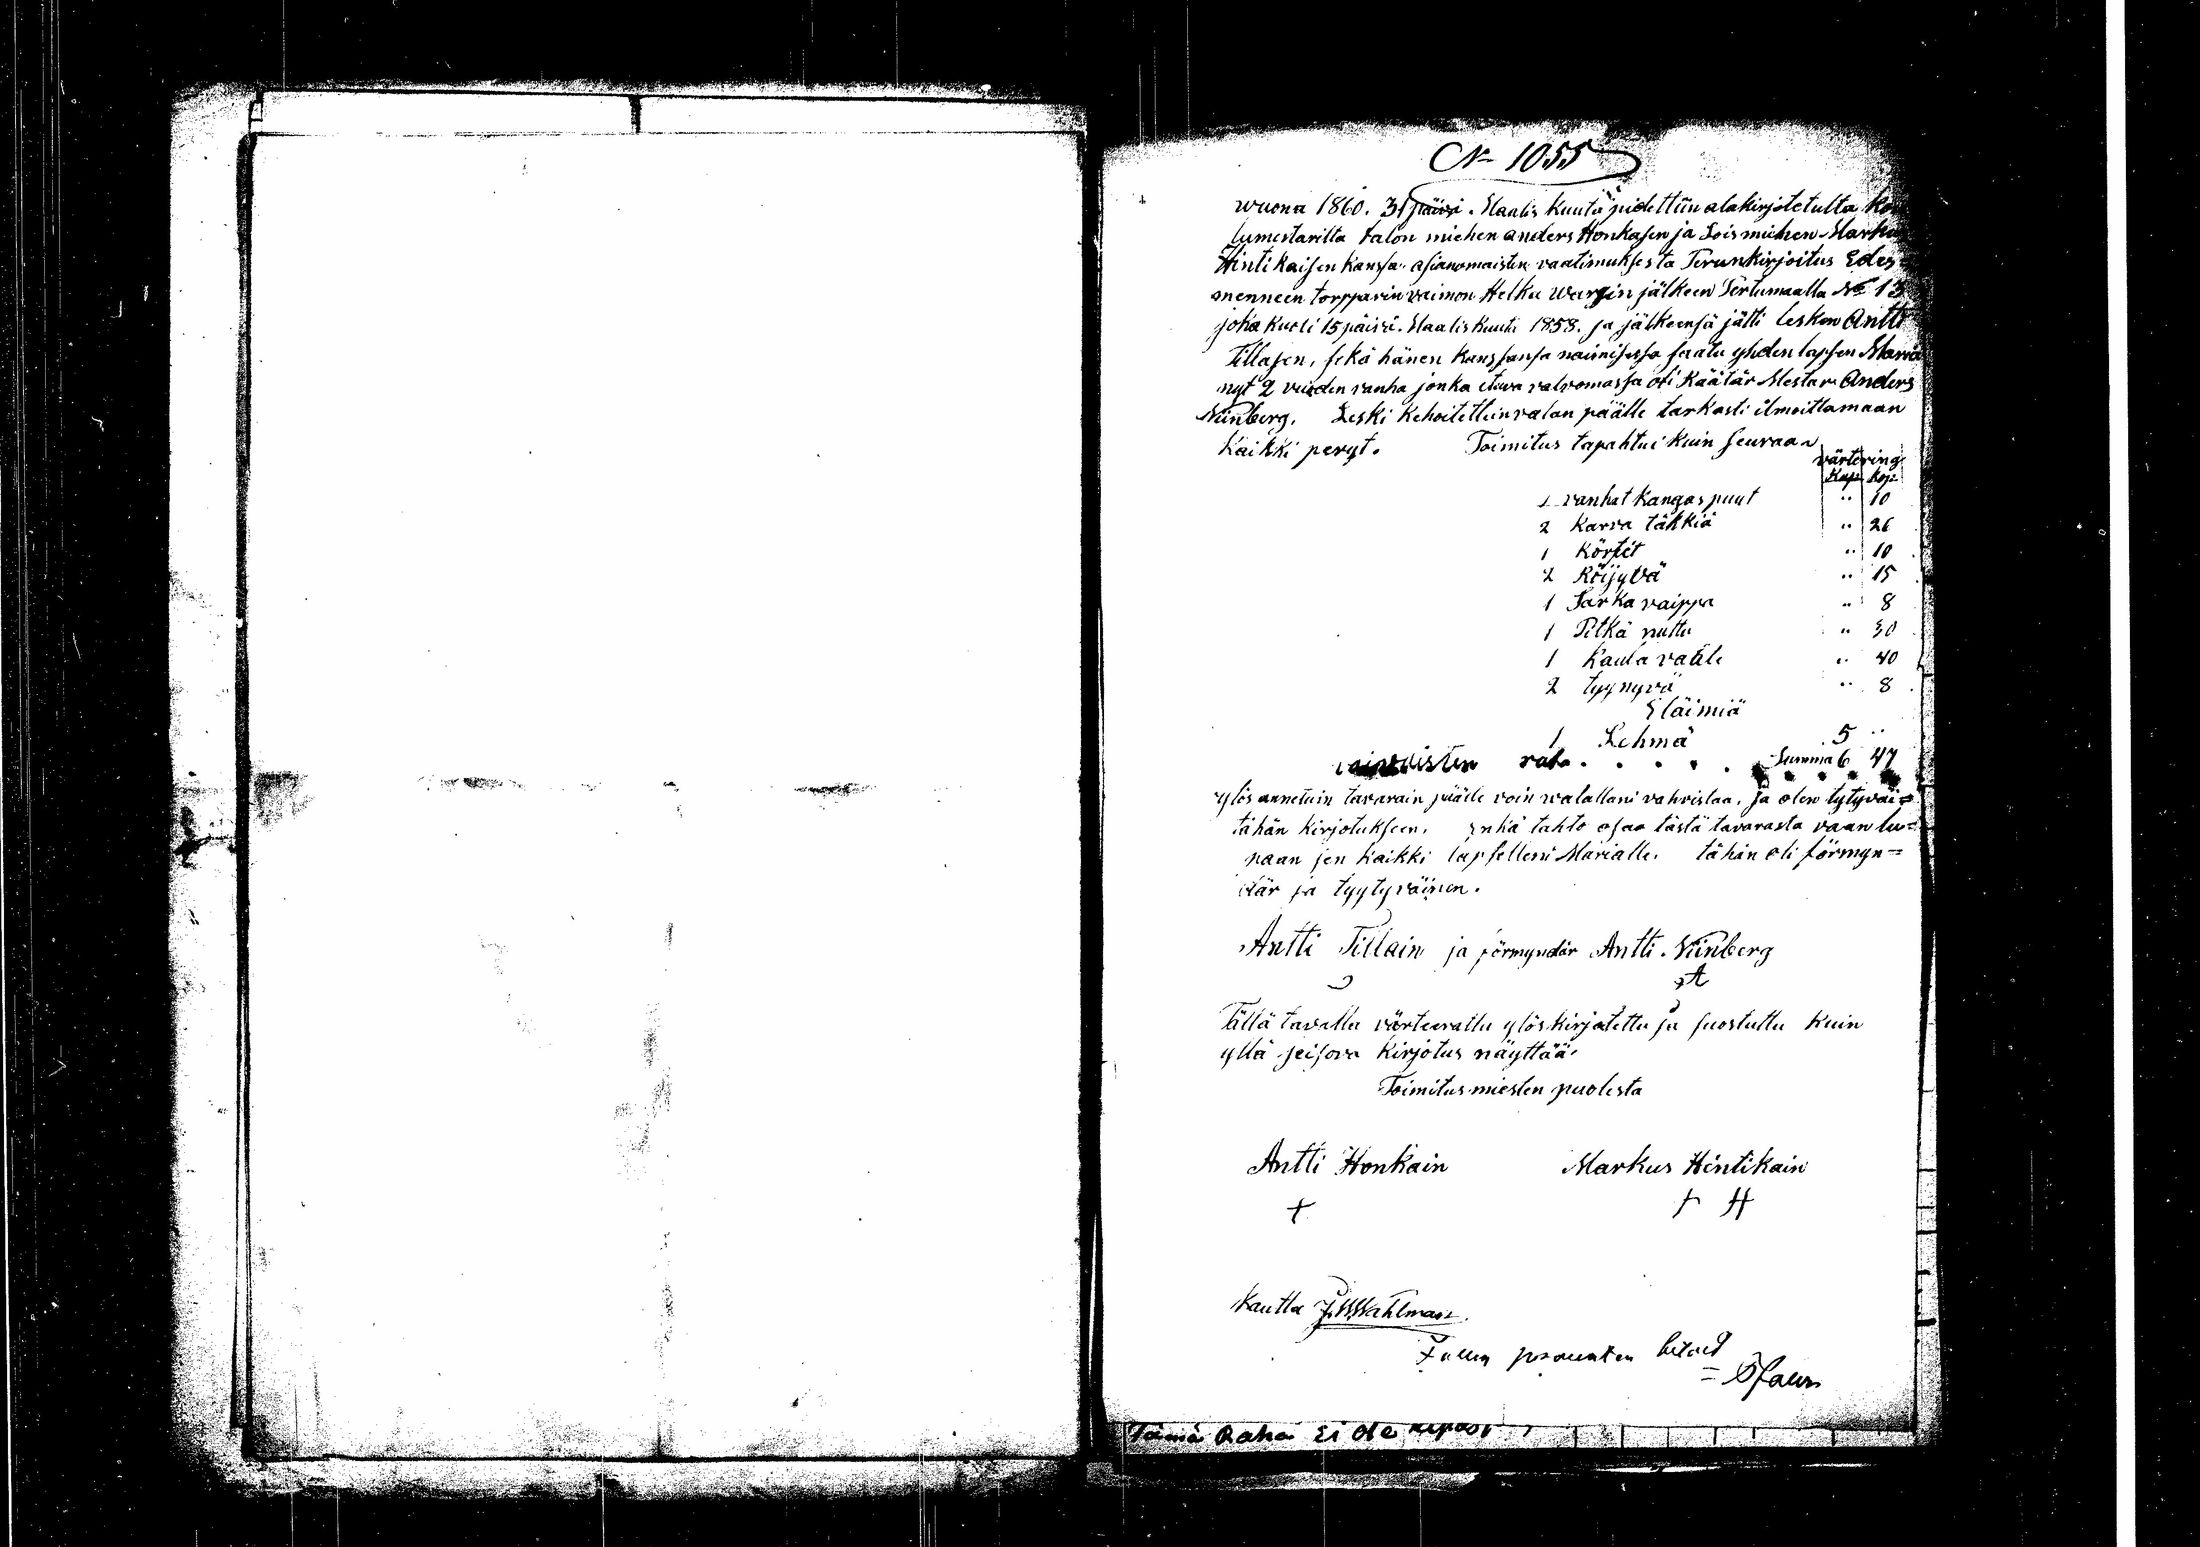 N 1055
wuona 1860. 31 päivä. Maalis Kuuta pidettiin alakirjotetulta
lumestarilta talon miehen anders Honkasen ja Loismiehen Markus
Hintikaisen kanssa asianomaisten vaatimuksesta Perunkirjoitus Edes=
menneen torpparin vaimon Helka jälkeen Pertumaalla No 13
joka kuoli 15 päivä. Maalis kuuta 1858. ja jälkeensä jätti lesken Antti
Tillasen, sekä hänen kanssansa naimisessa saatu yhden lapsen Maria
nyt 2 vuoden vanha jonka etuva valvomassa oli Käätär Mestar Anders
Niinberg. Leski kehoitettiin valan päälle tarkasti ilmoittamaan
Kaikki peryt. Toimitus tapahtui kuin seuraa
värtering
Rup Kop
1 vanhat Kangas puut .. 10
2 Karva täkkiä .. 26
1 Körtit .. 10
2 Röijyvä .. 15
1 Sarka vaippa .. 8
1 Pitkä nuttu .. 30
1 Kaula vaate .. 40
2 tyynyvä .. 8
Eläimiä
1 Lehmä 5 ..
vaivaisten raha . . . . . Summa 6 47
ylös annetuin tavarain päälle voin walallani vahvistaa. ja olen tytyväi=
tähän kirjotukseen. Enkä tahto osaa tästä tavarasta vaan lu=
paan sen kaikki lapselleni Marialle. tähän oli förmyn=
där ja tyytyväinen.
Antti Tillain ja förmyndär Antti Niinberg
A
Tällä tavalla värteerattu ylöskirjotettu ja suostuttu kuin
yllä seisova kirjotus näyttää.
Toimitus miesten puolesta
Antti Honkain Markus Hintikain
+ + H
kautta J. W. Wahlman.
betald
Tämä Raha Ei ole